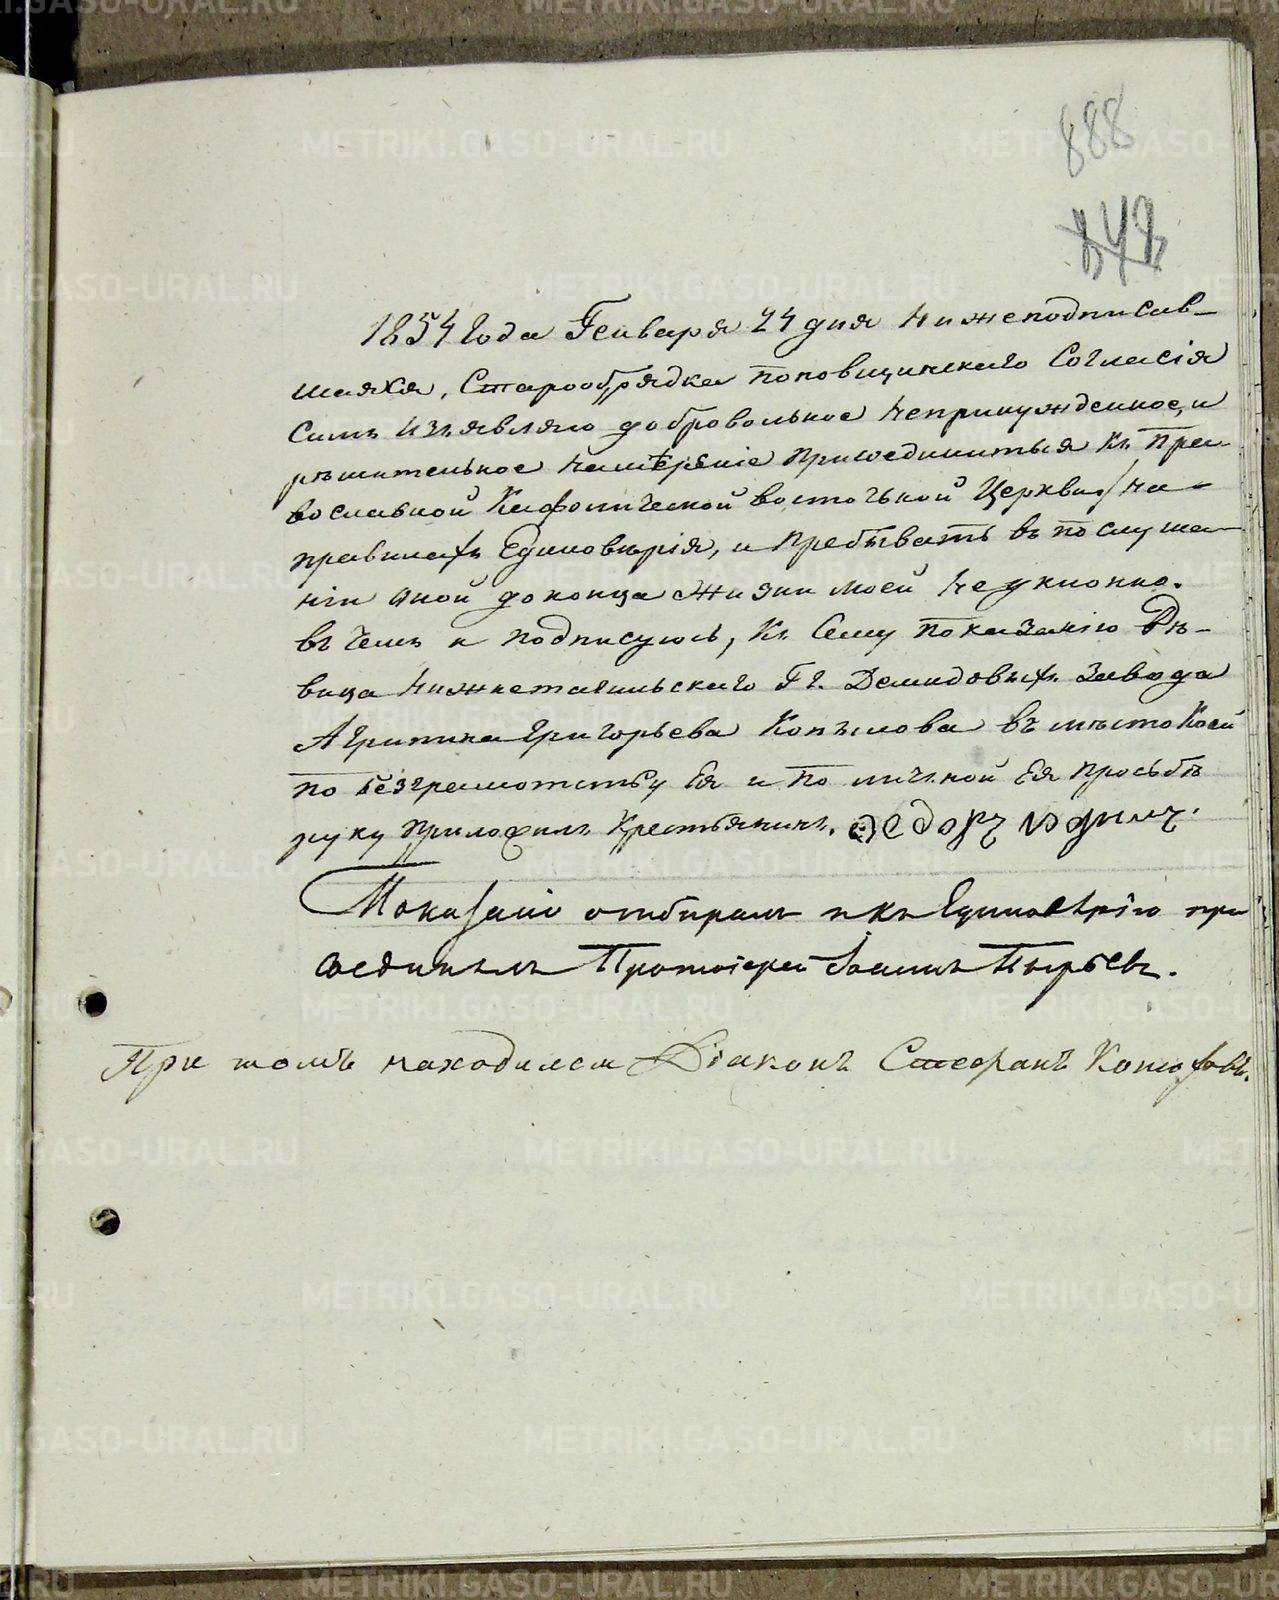 888
1854 Года Генваря 24 дня нижеподписав-
шаяся, Старообрядка поповщинскаго Согласія
Симъ изъявляю добровольное непринужденное, и
рѣшительное намѣреніе присоединиться къ Пра-
вославной Каѳолической восточной Церкви, на
правилахъ Единовѣрія, и пребывать въ послуша-
ніи оной до конца жизни моей неуклонно.
въ чемъ и подписуюсь, къ Сему показанію Дѣ-
вица Нижнетагильскаго Гг. Демидовыхъ завода
Агрипина Григорьева Копылова вмѣсто коей
по безграмотству Ея и по личной Ея просьбѣ
руку приложилъ Крестьянинъ. Ѳедоръ
Показаніе отбиралъ и къ Единовѣрію при
соединилъ Протоіерей Іоаннъ Пырьевъ.
При томъ находился Діаконъ Стефанъ
METRIKI.GASO-URAL.RU